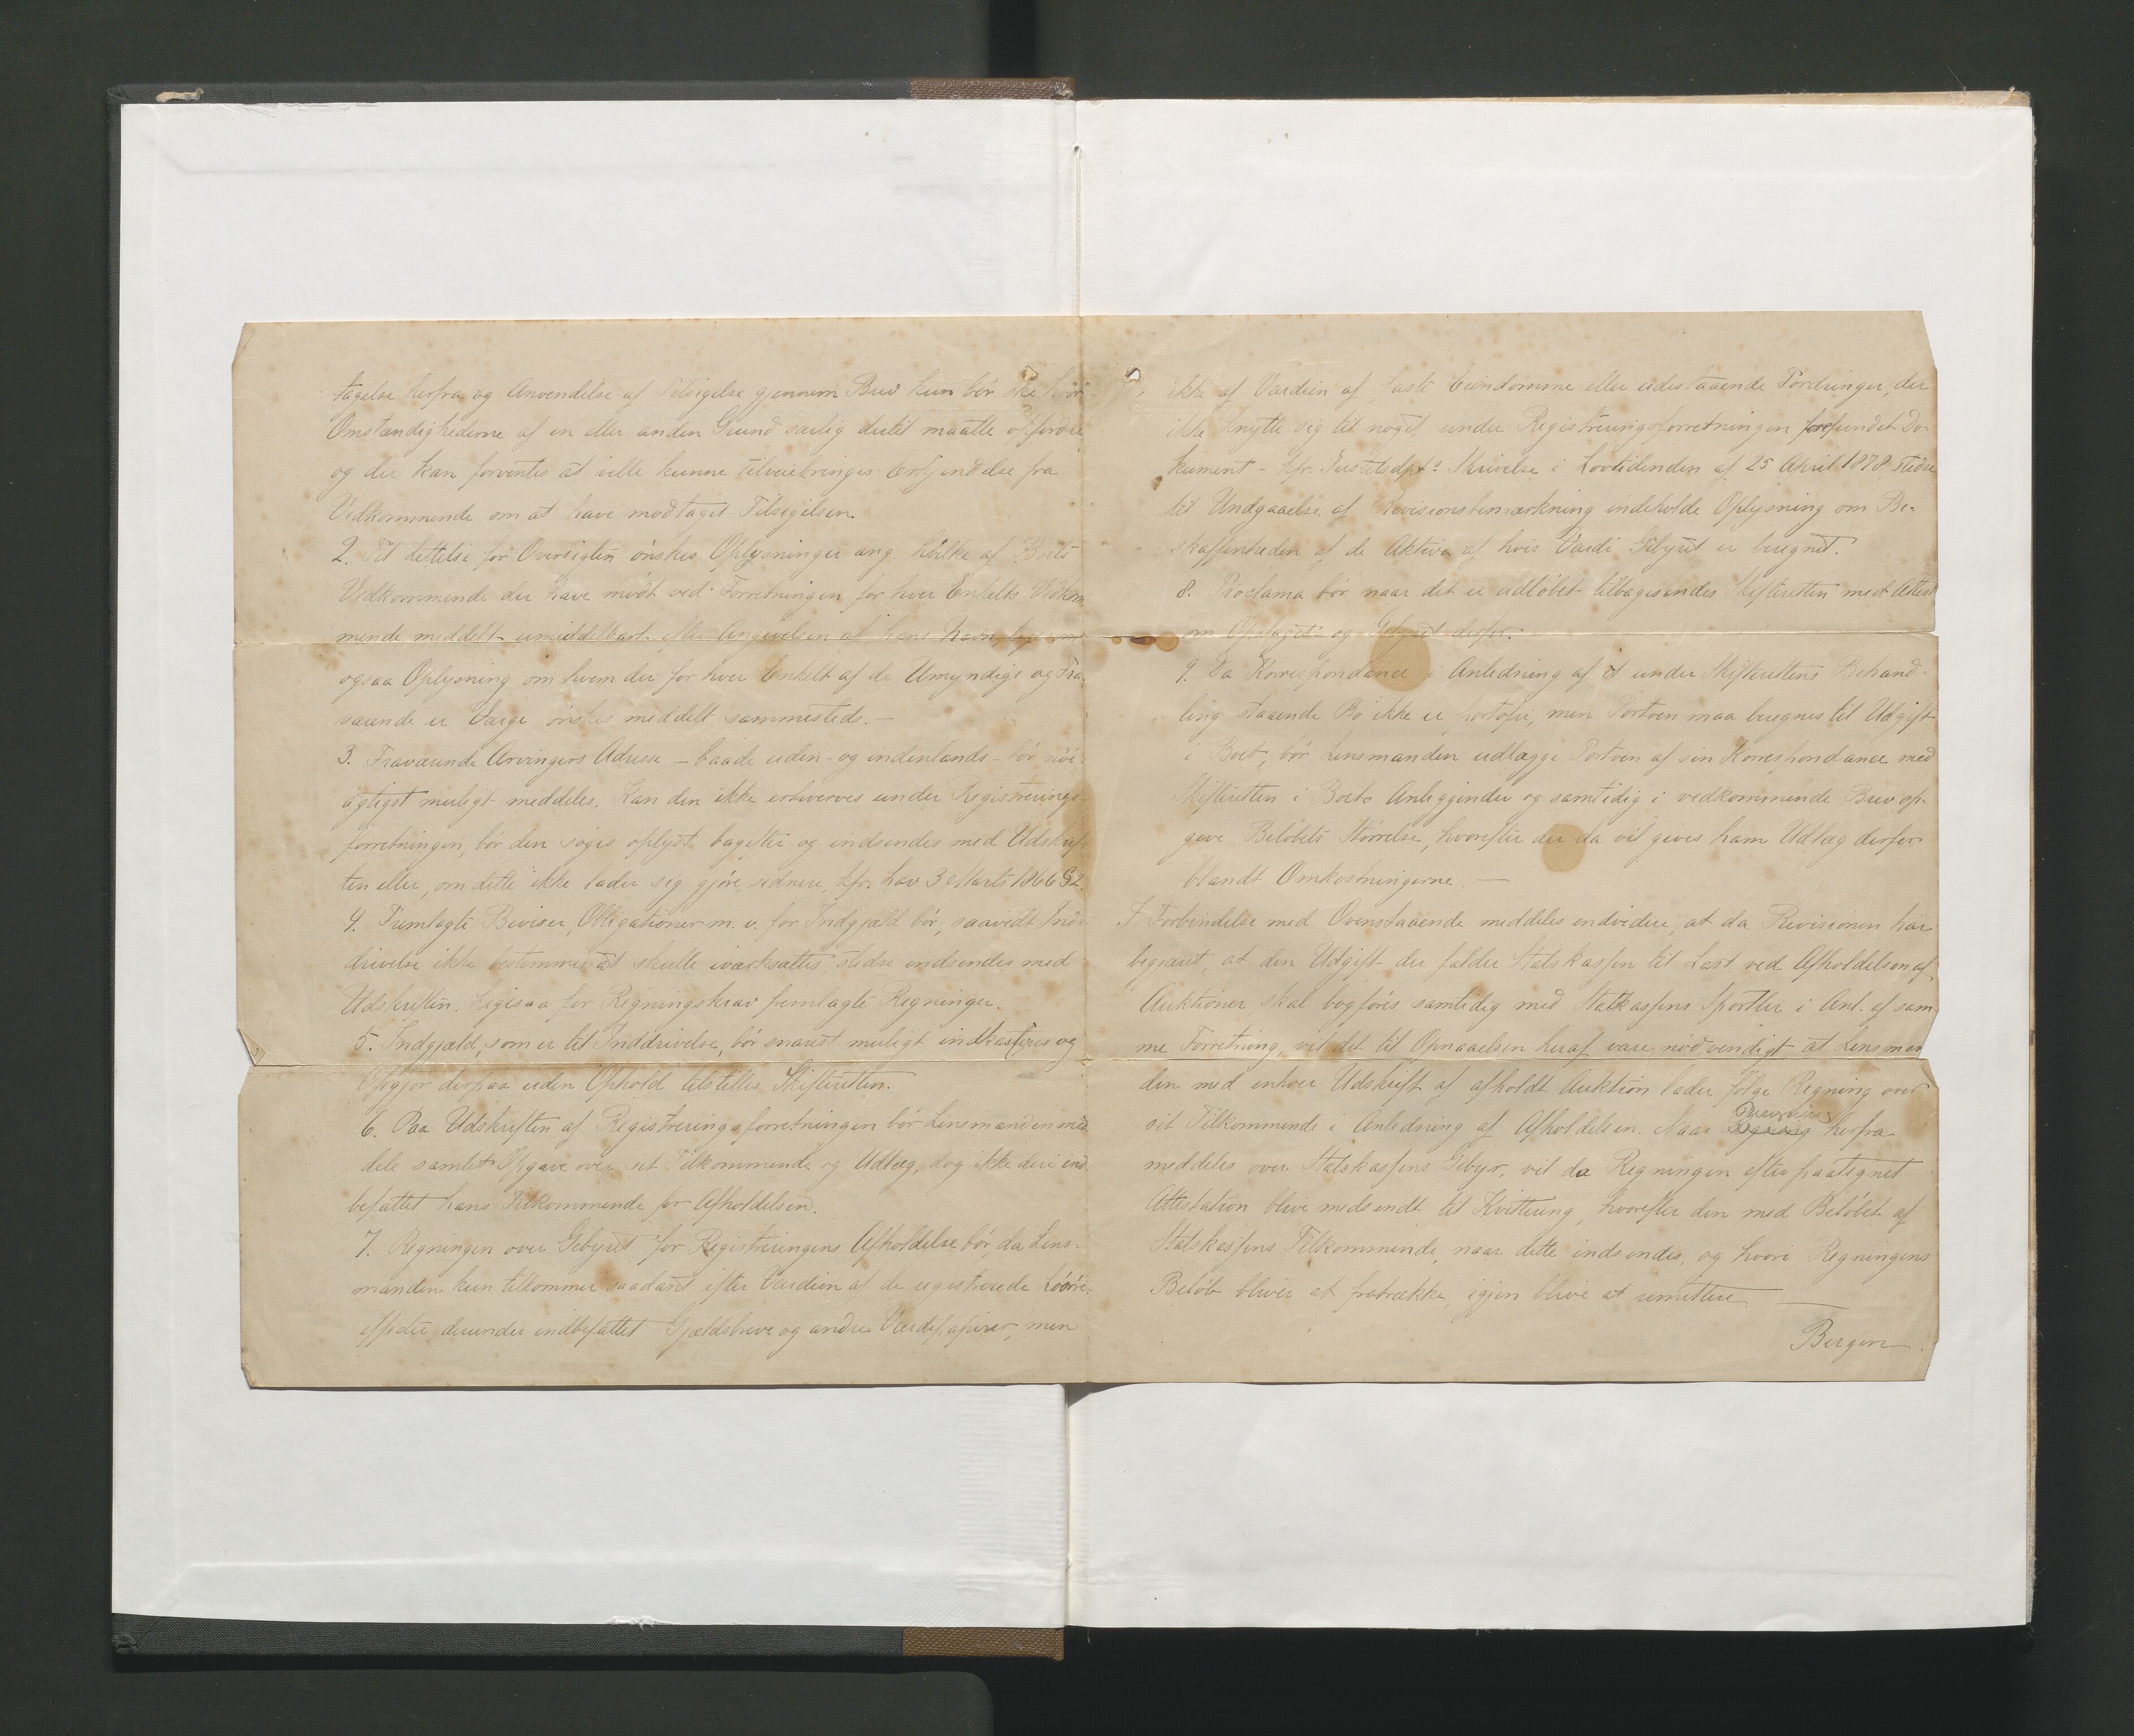 tagelse herfra og Anvendelse af Tilsigelse gjennem Brev kun bør ske hvor
Omstændighederne af en eller anden Grund særlig dertil maatte opfordre
og der kan forventes at ville kunne tilveiebringes Erkjendelse fra
Vedkommende om at have modtaget Tilsigelsen.
2. Til Lettelse for Oversigten ønskes Oplysninger ang. hvilke af Boets
Vedkommende der have mødt ved Forretningen for hver Enkelts Vedkom
mende meddelt umiddelbart efter Angivelsen af hans Navn, ligesom
ogsaa Oplysning om hvem der for hver Enkelt af de Umyndige og Fra-
værende er Værge ønskes meddelt sammesteds. —
3. Fraværende Arvingers Adresse – baade uden- og indenlands – bør nøi-
agtigst muligt meddeles. Kan den ikke erhverves under Registrerings-
forretningen, bør den søges oplyst bagefter og indsendes med Udskrif-
ten eller, om dette ikke lader sig gjøre, sednere, kfr. Lov 3 Marts 1866 § 2.
4. Fremlagte Beviser, Obligationer m. v. for Indgjæld bør, saavidt Ind-
drivelse ikke bestemmes at skulle iværksættes, stedse indsendes med
Udskriften. Ligesaa for Regningskrav fremlagte Regninger.
5. Indgjæld, som er til Inddrivelse, bør snarest muligt indkasseres og
Opgjør derpaa uden Ophold tilstilles Skifteretten.
6. Paa Udskriften af Registreringsforretningen bør Lensmanden med
dele samlet Opgave over sit Tilkommende og Udlæg, dog ikke deri ind
befattet hans Tilkommende for Afholdelsen.
7. Regningen over Gebyret for Registreringens Afholdelse bør, da Lens-
manden kun tilkommer saadant efter Værdien af de registrerede Løsøre-
effekter, derunder indbefattet Gjældsbreve og andre Værdipapirer, men
ikke af Værdien af faste Eiendomme eller udestaaende Fordringer, der
ikke knytte sig til noget under Registreringsforretningen forefundet Do-
kument – kfr. Justitsdpts Skrivelse i Lovtidenden af 25 April 1878, stedse
til Undgaaelse af Revisionsbemærkning indeholde Oplysning om Be-
skaffenheden af de Aktiva af hvis Værdi Gebyret er beregnet.
8. Proclama bør naar det er udløbet tilbagesendes Skifteretten med Attest
om Opslaget og Gebyret derfor.
9. Da Korrespondance i Anledning af et under Skifterettens Behand-
ling staaende Bo ikke er portofri, men Portoen maa beregnes til Udgift
i Boet, bør Lensmanden udlægge Portoen af sin Korrespondance med
Skifteretten i Boets Anliggender og samtidig i vedkommende Brev op-
give Beløbets Størrelse, hvorefter der da vil gives ham Udlæg derfor
blandt Omkostningerne. —
I Forbindelse med Ovenstaaende meddeles endvidere, at da Revisionen har
begjært, at den Udgift der falder Statskassen til Last ved Afholdelsen af
Auktioner, skal bogføres samtidig med Statkassens Sportler i Anl. af sam-
me Forretning, vil det til Opnaaelsen heraf være nødvendigt at Lensman
den med enhver Udskrift af afholdt Auktion lader følge Regning over
sit Tilkommende i Anledning af Afholdelsen. Naar herfra
meddeles over Statskassens Gebyr, vil da Regningen efter paategnet
Attestation blive medsendt til Kvittering, hvorefter den med Beløbet af
Statskassens Tilkommende, naar dette indsendes, og hvori Regningens
Beløb bliver at fratrække, igjen blive at remittere. —
Bergen